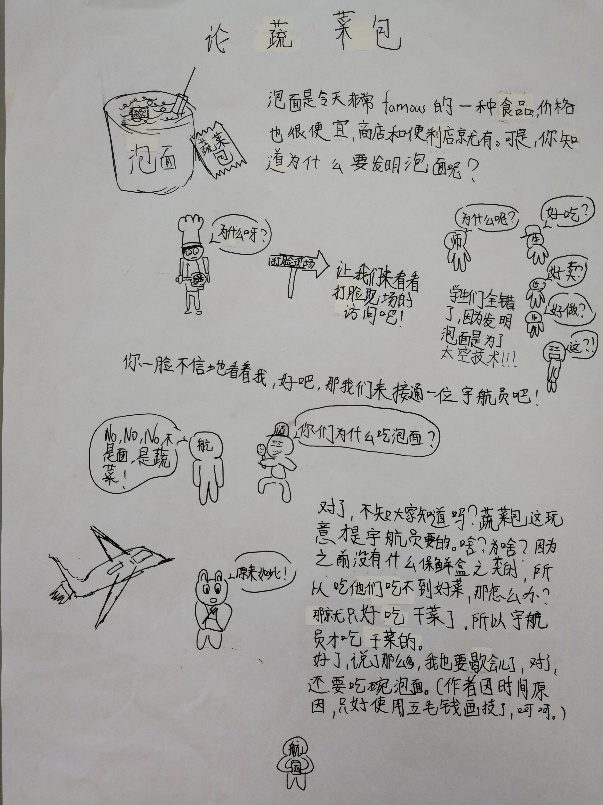 论蔬菜包
泡面
蔬菜
包
泡面是今天非常 famous 的一种食品,价格
也很便宜,商店和便利店就有。可是,你知
道为什么要发明泡面呢?
为什么呀?
打脸现场
让我们来看看
打脸现场的
访问吧!
为什么呢?
师
好吃?
生
好卖?
好做?
这?!
学生们全错
了,因为发明
泡面是为了
太空技术!!!
你一脸不信土也看看我,好吧,那我们来接通一位宇航员吧!
No,No,No,不
是面,是蔬
菜!
航
你们为什么吃泡面?
原来如此!
对了,不知大家知道吗?蔬菜包,这玩
意才是宇航员要的。啥?为啥?因为
之前没有什么保鲜盒之类的,所
以吃他们吃不到好菜,那怎么办?
那就只好吃干菜了,所以宇航
员才吃干菜的。
好了,说了那么多,我也要歇会儿了,对了,
还要吃碗泡面。(作者因时间原
因,只好使用五毛钱画技了,呵呵。)
航